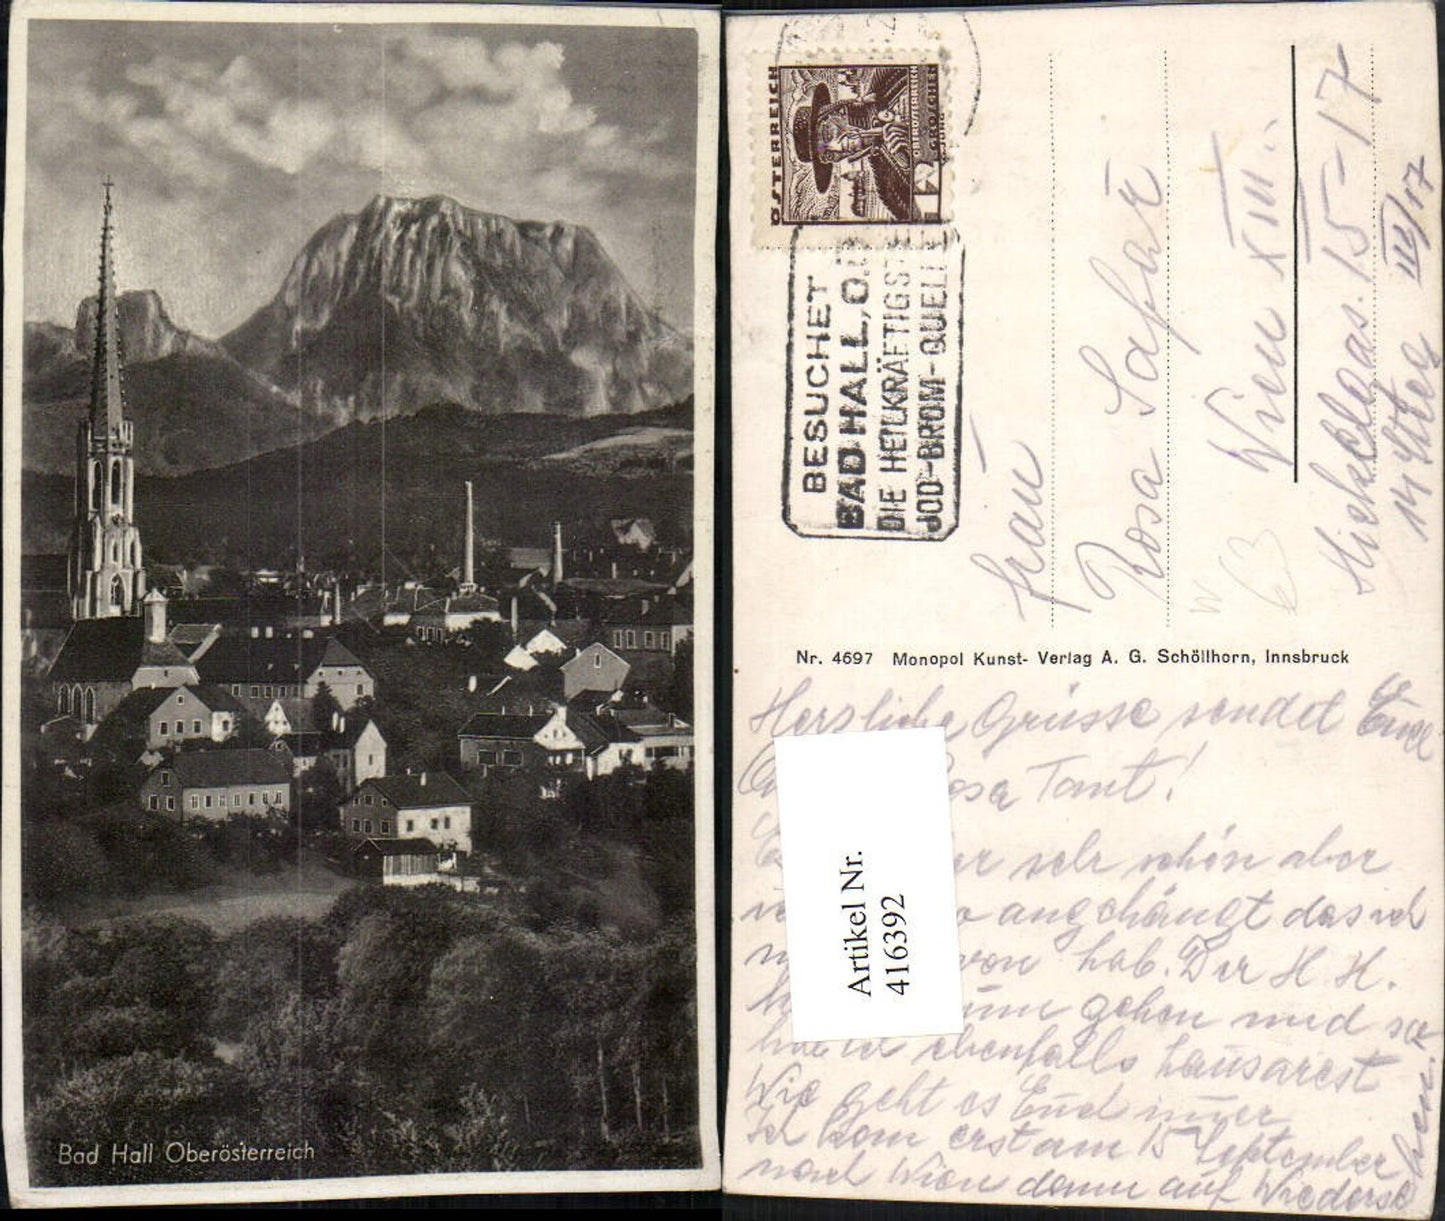 Bad Hall Oberösterreich
ÖSTERREICH
OBERÖSTERREICH
12 GROSCHEN
BESUCHET
BAD HALL, O.
DIE HEILKRÄFTIGST
JOD-BROM-QUELLE
Frau
Rosa Safar
Wien XIII.
15-17
III/17
63
Nr. 4697 Monopol Kunst-Verlag A. G. Schöllhorn, Innsbruck
Herzliche Grüsse sendet Eine
Tant!
sehr schön aber
angehängt das ich
von hab. Der H. H.
gehen und so
hab ich ebenfalls hausarest
Wie geht es Euch immer
Ich kom erst am 15 September
nach Wien dann auf Wiederse
hen.
Artikel Nr.
416392